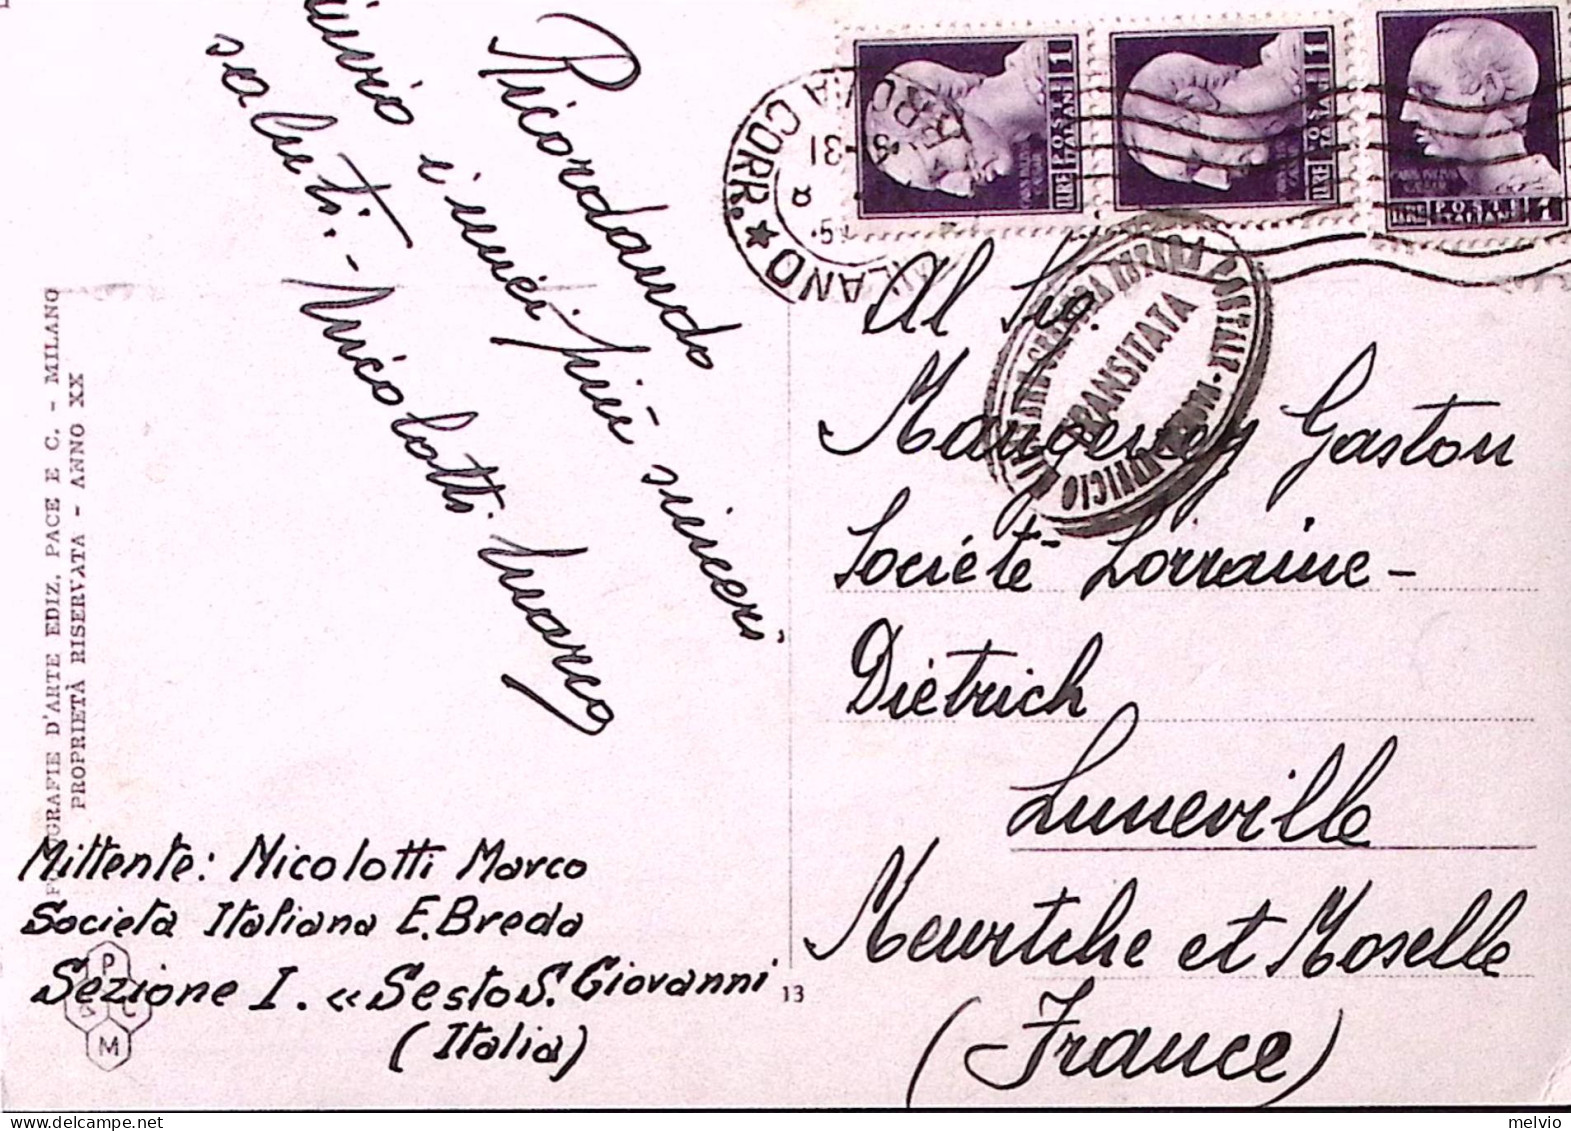 Ricordando
invio i miei più sinceri
saluti. - Nicolotti Marco
FOTOGRAFIE D'ARTE EDIZ. PACE E C. - MILANO
PROPRIETÀ RISERVATA - ANNO XX
Mittente: Nicolotti Marco
Società Italiana E. Breda
Sezione I. « Sesto S. Giovanni
(Italia)
P
V C
M
13
MILANO CORR.
31
LIRE POSTE ITALIANE 1
LIRE POSTE ITALIANE 1
LIRE POSTE ITALIANE 1
TRANSITATA
UFFICIO
POSTALE
Al Sig
Gaston
Société Lorraine-
Dietrich
Luneville
Meurthe et Moselle
(France)
melvio